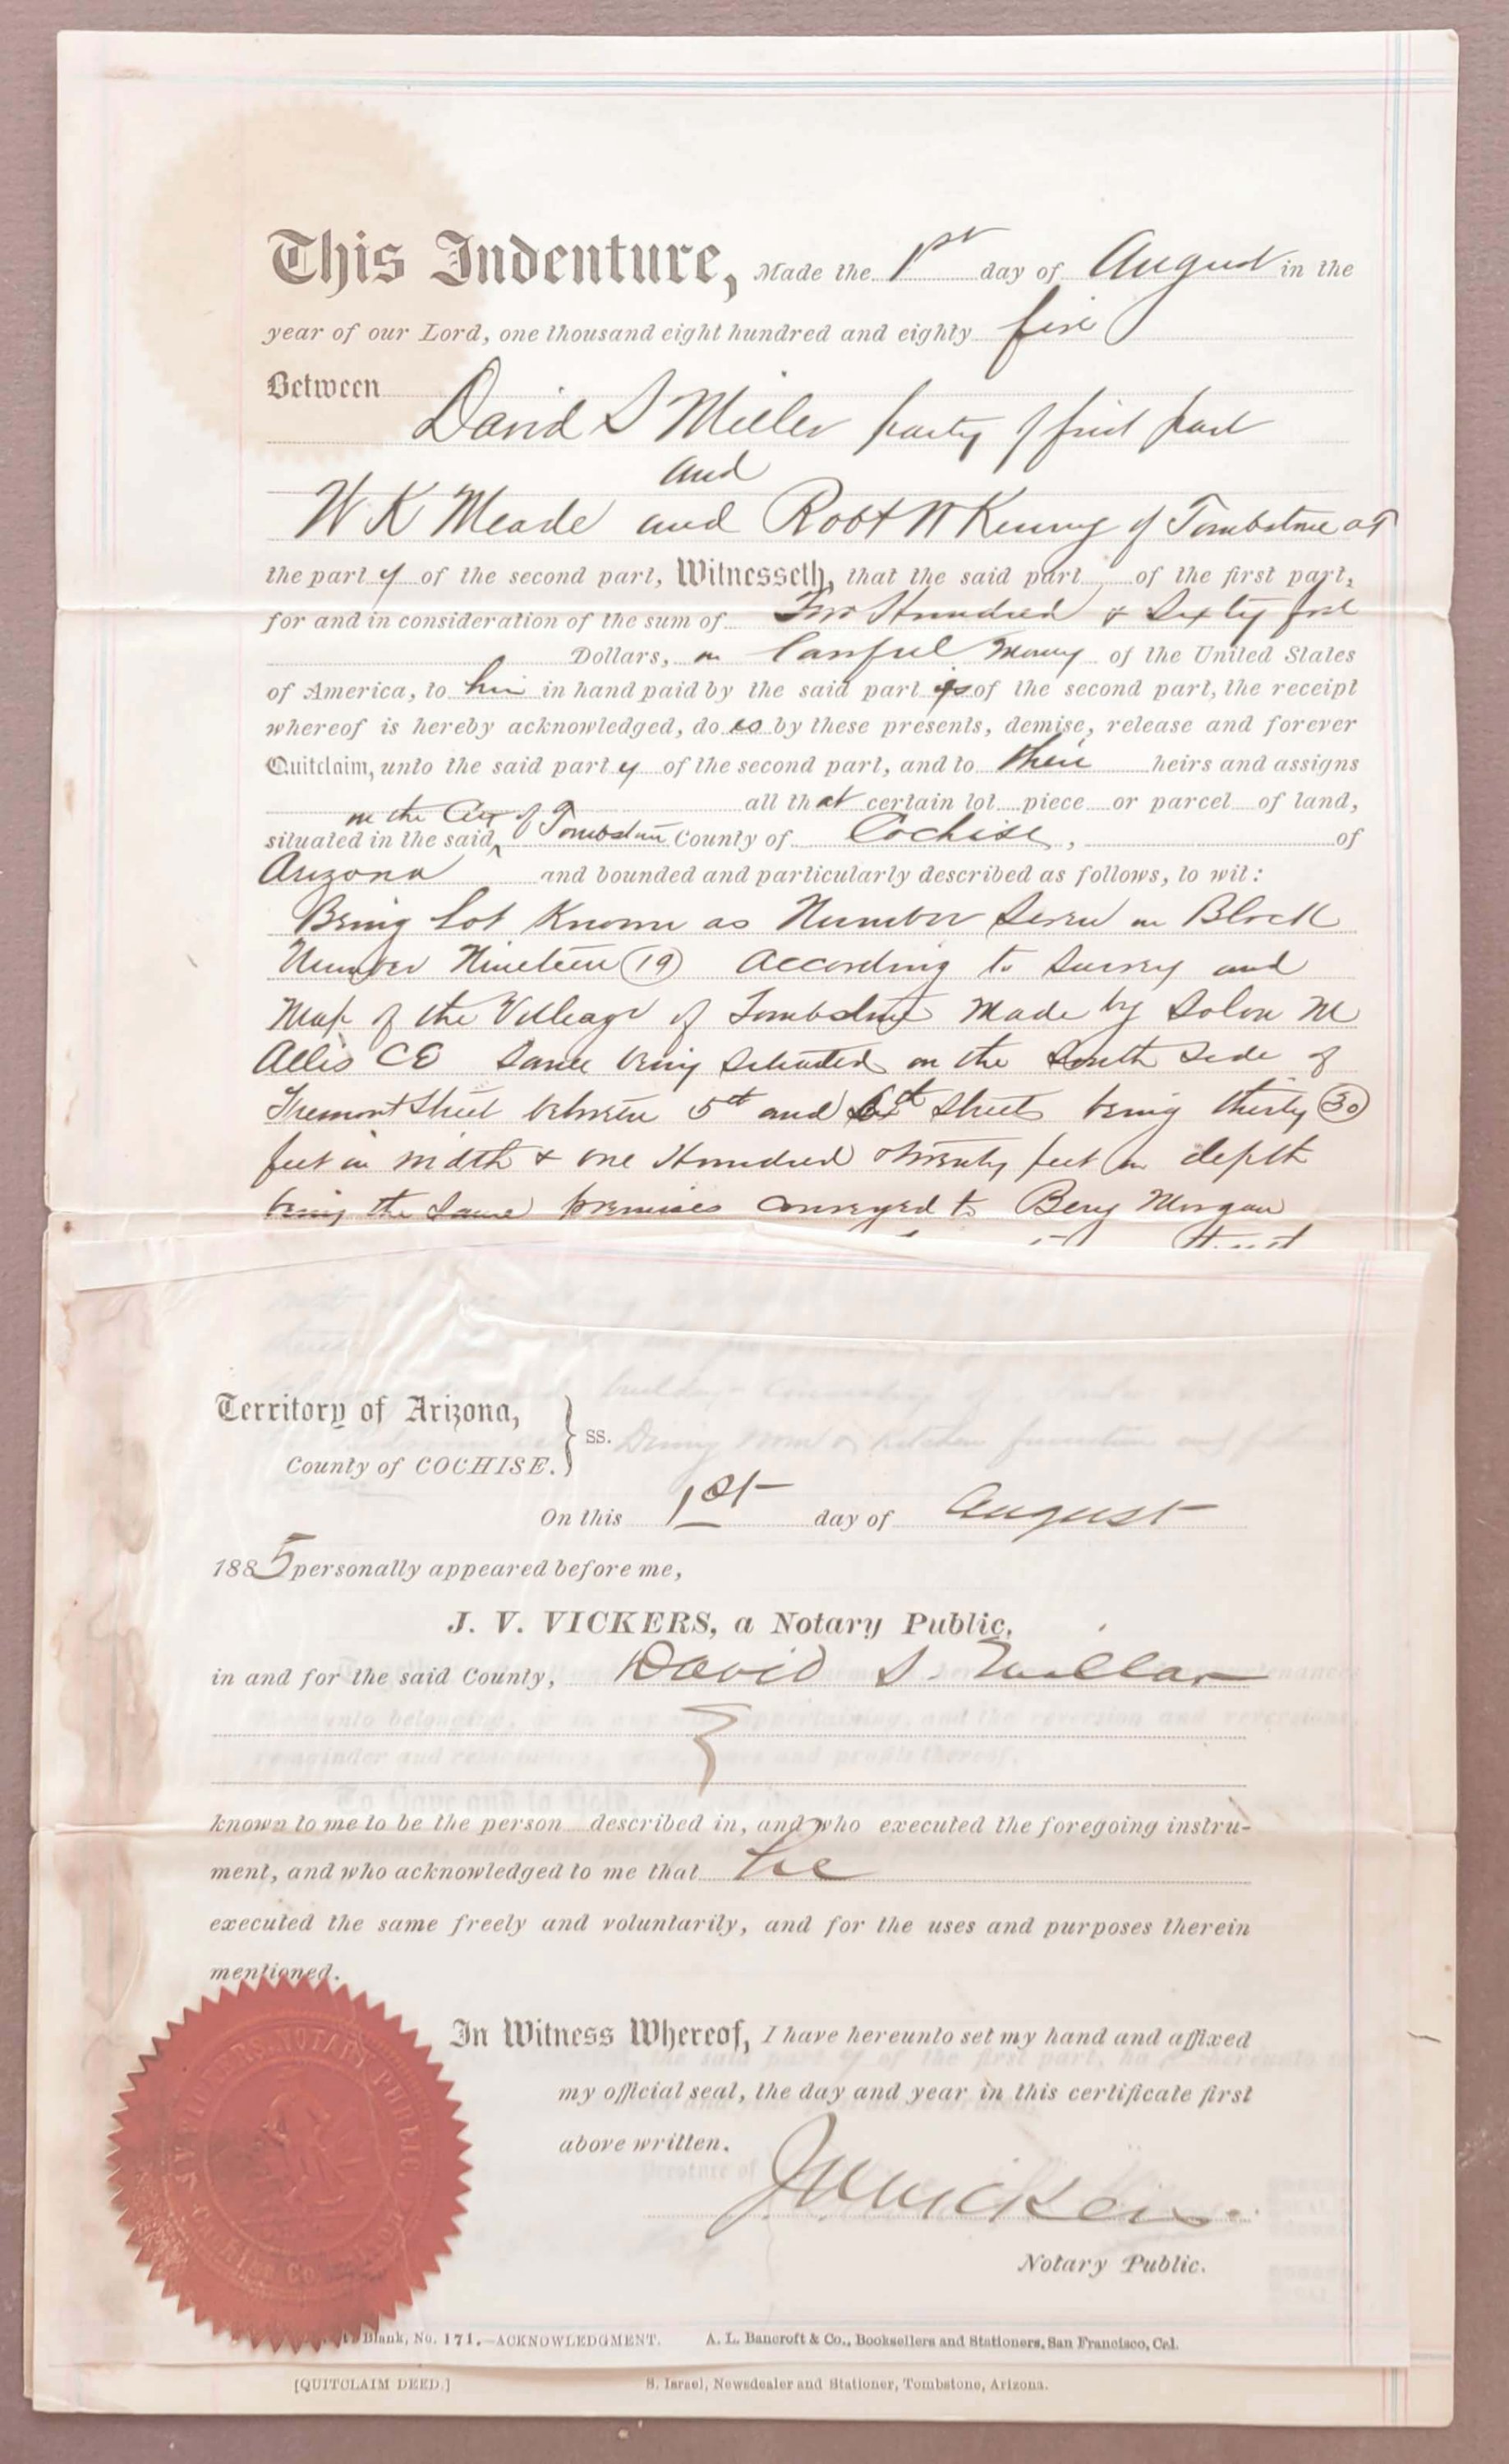 This Indenture, Made the 1st day of August in the
year of our Lord, one thousand eight hundred and eighty five
Between
David S Miller party of first part
and
W K Meade and Robt W Kenny of Tombstone AT
the party of the second part, Witnesseth, that the said part of the first part,
for and in consideration of the sum of Two Hundred & Sixty five
Dollars, in Lawful Money of the United States
of America, to him in hand paid by the said part of the second part, the receipt
whereof is hereby acknowledged, does by these presents, demise, release and forever
Quitclaim, unto the said party of the second part, and to their heirs and assigns
all that certain lot piece or parcel of land,
in the City of
situated in the said Tombstone County of Cochise, of
Arizona and bounded and particularly described as follows, to wit:
Being Lot Known as Number Seven in Block
Number Nineteen (19) According to Survey and
Map of the Village of Tombstone Made by Solon M
Allis CE Same being Situated on the South Side of
Fremont Street between 5th and 6th Streets being thirty (30)
feet in width & one Hundred & twenty feet in depth
being the Same premises conveyed to Morgan
Territory of Arizona,
County of COCHISE. } SS.
On this 1st day of August
1885 personally appeared before me,
J. V. VICKERS, a Notary Public,
in and for the said County, David S. Millar
known to me to be the person described in, and who executed the foregoing instru-
ment, and who acknowledged to me that he
executed the same freely and voluntarily, and for the uses and purposes therein
mentioned.
In Witness Whereof, I have hereunto set my hand and affixed
my official seal, the day and year in this certificate first
above written.
J V Vickers
Notary Public.
NOTARY PUBLIC
Blank, No. 171.—ACKNOWLEDGMENT. A. L. Bancroft & Co., Booksellers and Stationers, San Francisco, Cal.
[QUITCLAIM DEED.] S. Israel, Newsdealer and Stationer, Tombstone, Arizona.